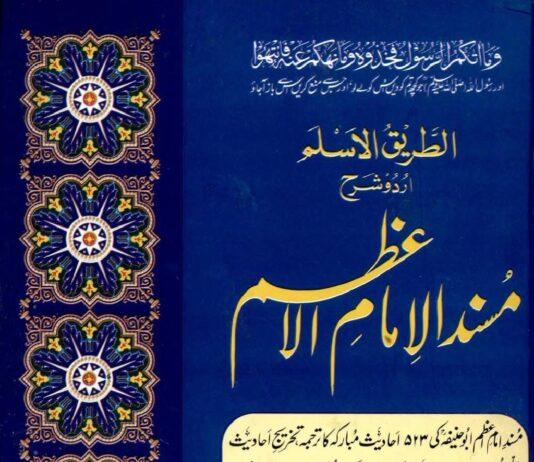 وَمَا اٰتٰىكُمُ الرَّسُوْلُ فَخُذُوْهُ وَمَا نَهٰىكُمْ عَنْهُ فَانْتَهُوْا
اور رسول اللہ (صلی اللہ علیہ وسلم) جو کچھ تم کو دیں اس کو لے لو اور جس سے منع کریں اس سے باز آجاؤ
الطریق الاسلم
اردو شرح
مُسند الامام الاعظم
مُسند امام اعظم ابوحنیفہؒ کی ۵۲۳ احادیث مبارکہ کا ترجمہ، تخریج احادیث